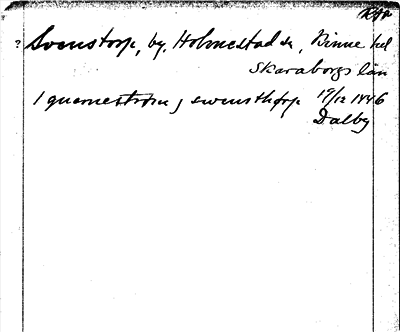 RAp
? Svenstorp, by, Holmestad sn, Kinne hd
Skaraborgs län
1 quarnestrøm j swensthorp 19/12 1446
Dalby